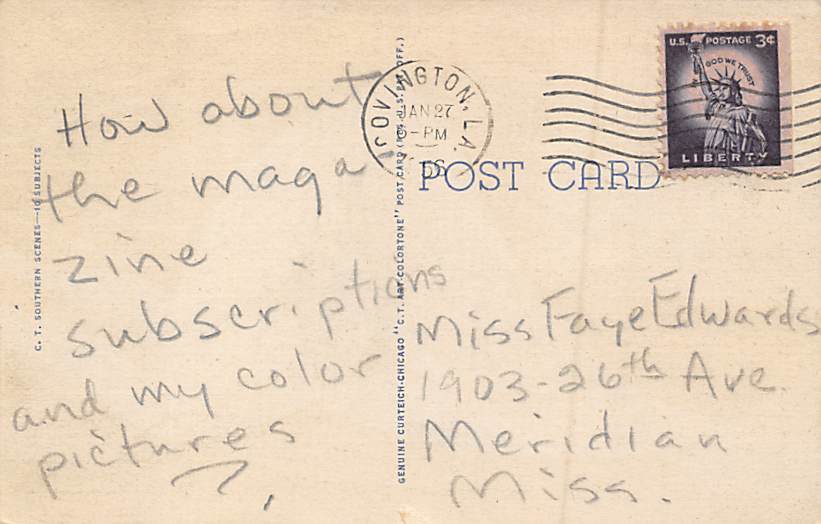 How about
the maga
zine
subscriptions
and my color
pictures
?
C. T. SOUTHERN SCENES—10 SUBJECTS
GENUINE CURTEICH-CHICAGO "C. T. ART-COLORTONE" POST CARD (REG. U.S. PAT. OFF.)
COVINGTON, LA.
JAN 27
PM
56
U.S. POSTAGE 3¢
IN GOD WE TRUST
LIBERTY
POST CARD
Miss Faye Edwards
1903-26th Ave.
Meridian
Miss.